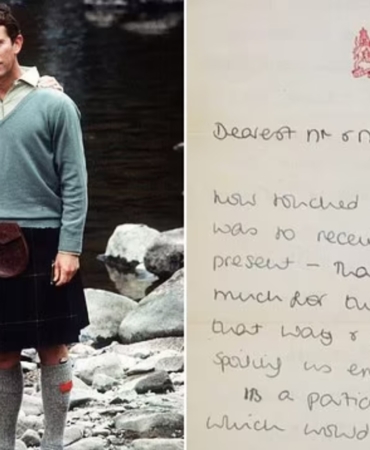 Dearest Mr & M
how touched
was to recei
present - Tha
much for th
that way &
spoiling us en
is a partic
which would